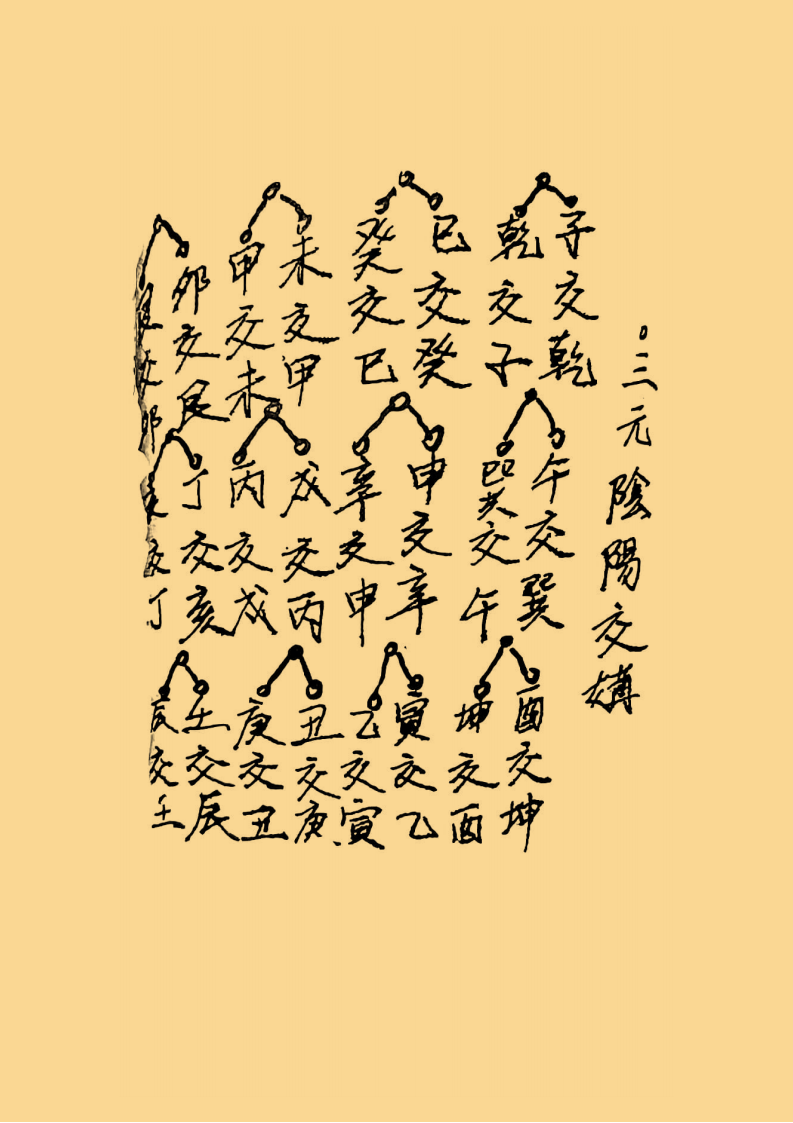 三元陰陽交媾
子交乾
乾交子
巳交癸
癸交巳
未交甲
甲交未
卯交艮
艮交卯
午交巽
巽交午
申交辛
辛交申
戌交丙
丙交戌
丁交亥
亥交丁
酉交坤
坤交酉
寅交乙
乙交寅
丑交庚
庚交丑
壬交辰
辰交壬